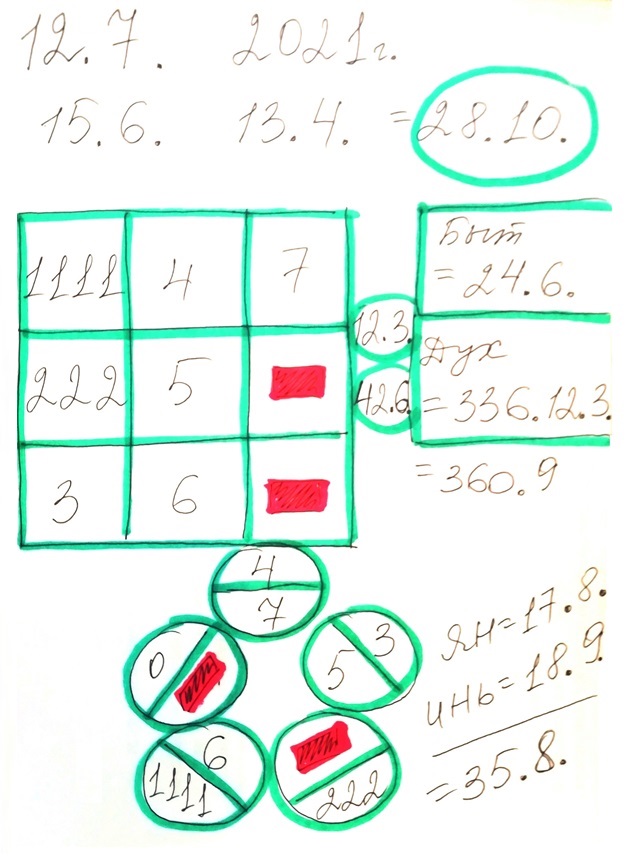 12.7. 2021г.
15.6. 13.4. = 28.10.
1111 4 7
222 5
3 6
12.3.
42.6.
Быт
= 24.6.
Дух
= 336.12.3.
= 360.9
4
7
0
3
5
6
1111
222
ЯН = 17.8.
ИНЬ = 18.9.
= 35.8.